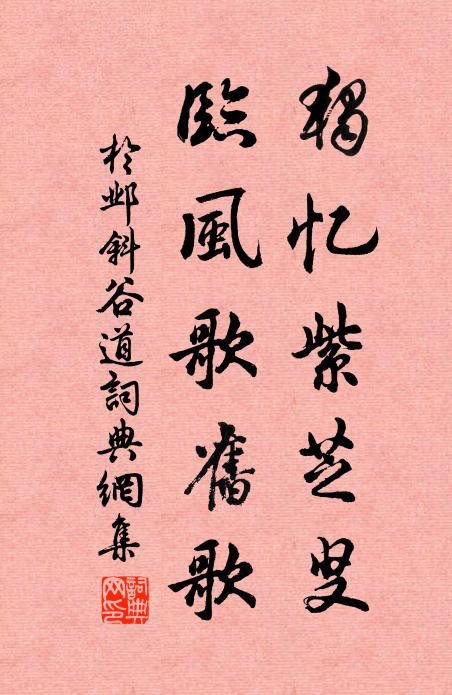 獨忆紫芝叟
臨風歌舊歌
於邺斜谷道詞典網集
詞典網印